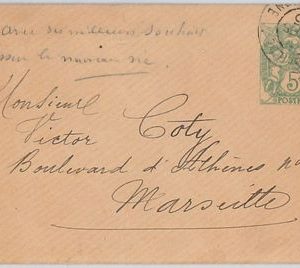 avec ses meilleurs souhaits
pour le nouveau né.
Monsieur
Victor Coty
Boulevard d'Athènes
Marseille
5
POSTE